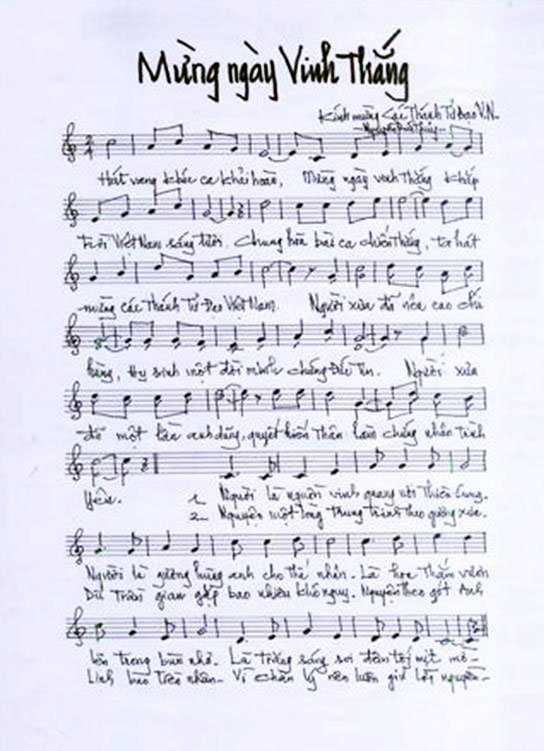 Mừng ngày Vinh Thắng
Kính mừng Các Thánh Tử Đạo V.N.
Hát vang khúc ca khải hoàn, Mừng ngày vinh thắng khắp
trời Việt Nam sáng tươi. Chung hòa bài ca chiến thắng, ta hát
mừng các Thánh Tử Đạo Việt Nam. Người xưa đã nêu cao chí
hùng, Hy sinh một đời minh chứng Đức Tin. Người xưa
đã một lần anh dũng, quyết hiến thân làm chứng nhân tình
yêu. 1_ Người là người vinh quang nơi Thiên Cung.
2_ Nguyện một lòng trung trinh theo gương xưa.
Người là gương hùng anh cho thế nhân. Là hoa thắm vươn
Dù trần gian gặp bao nhiêu khó nguy. Nguyện theo gót Anh
lên trong bùn nhơ. Là trăng sáng soi đêm tối mịt mờ_
Linh bao trên nhân_ Vì chân lý nên luôn giữ lời nguyền_